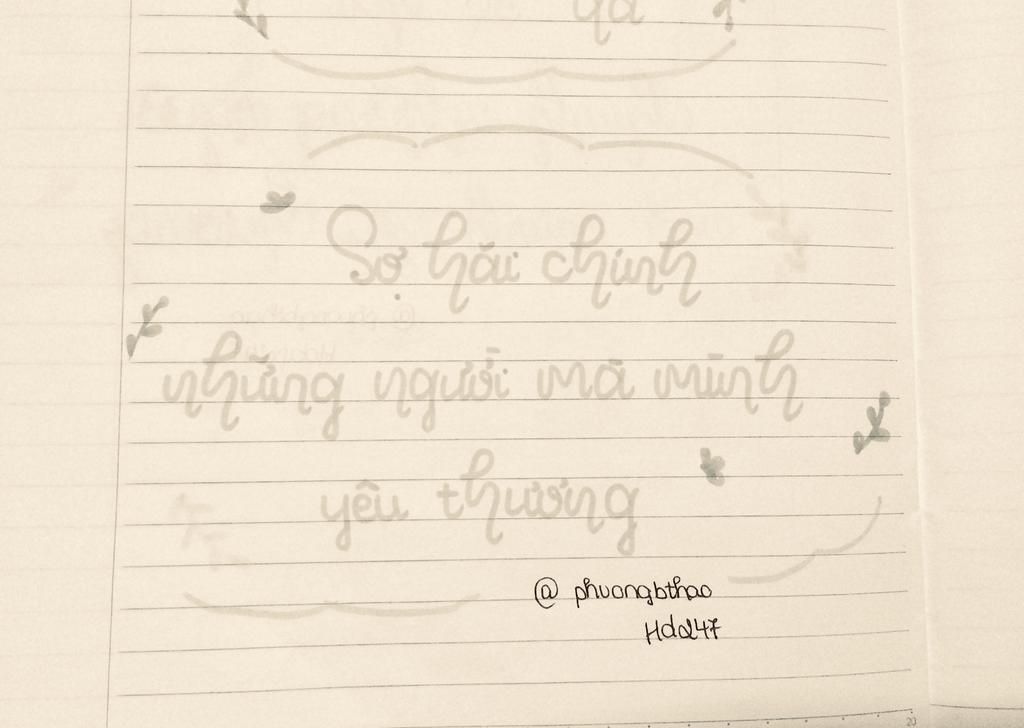 Sợ hãi chính
những người mà mình
yêu thương
@ phuongbthao
Hdq247
20